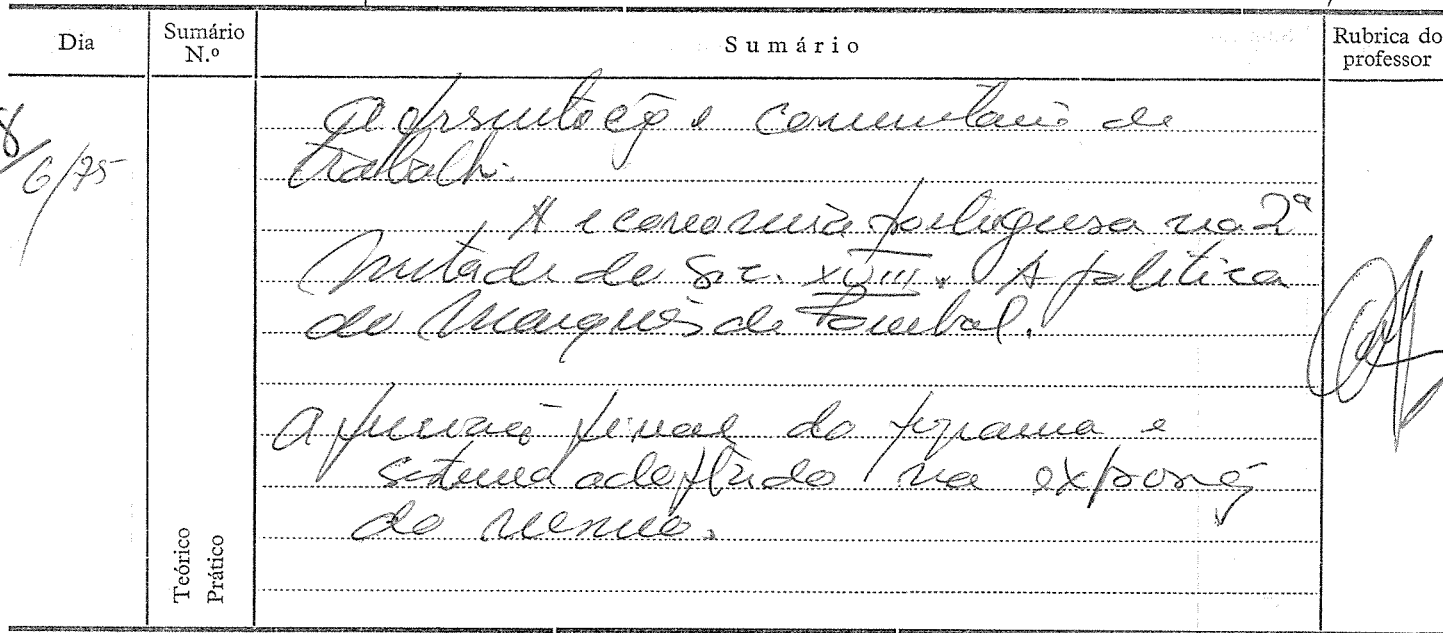 Dia
Sumário N.º
Sumário
Rubrica do professor
8/6/75
Apresentação e comentário de
trabalho.
A economia portuguesa na 2ª
metade do séc. XVIII. A política
do Marquês de Pombal.
final do programa e
sistema adoptado na exposição
do mesmo.
Teórico
Prático